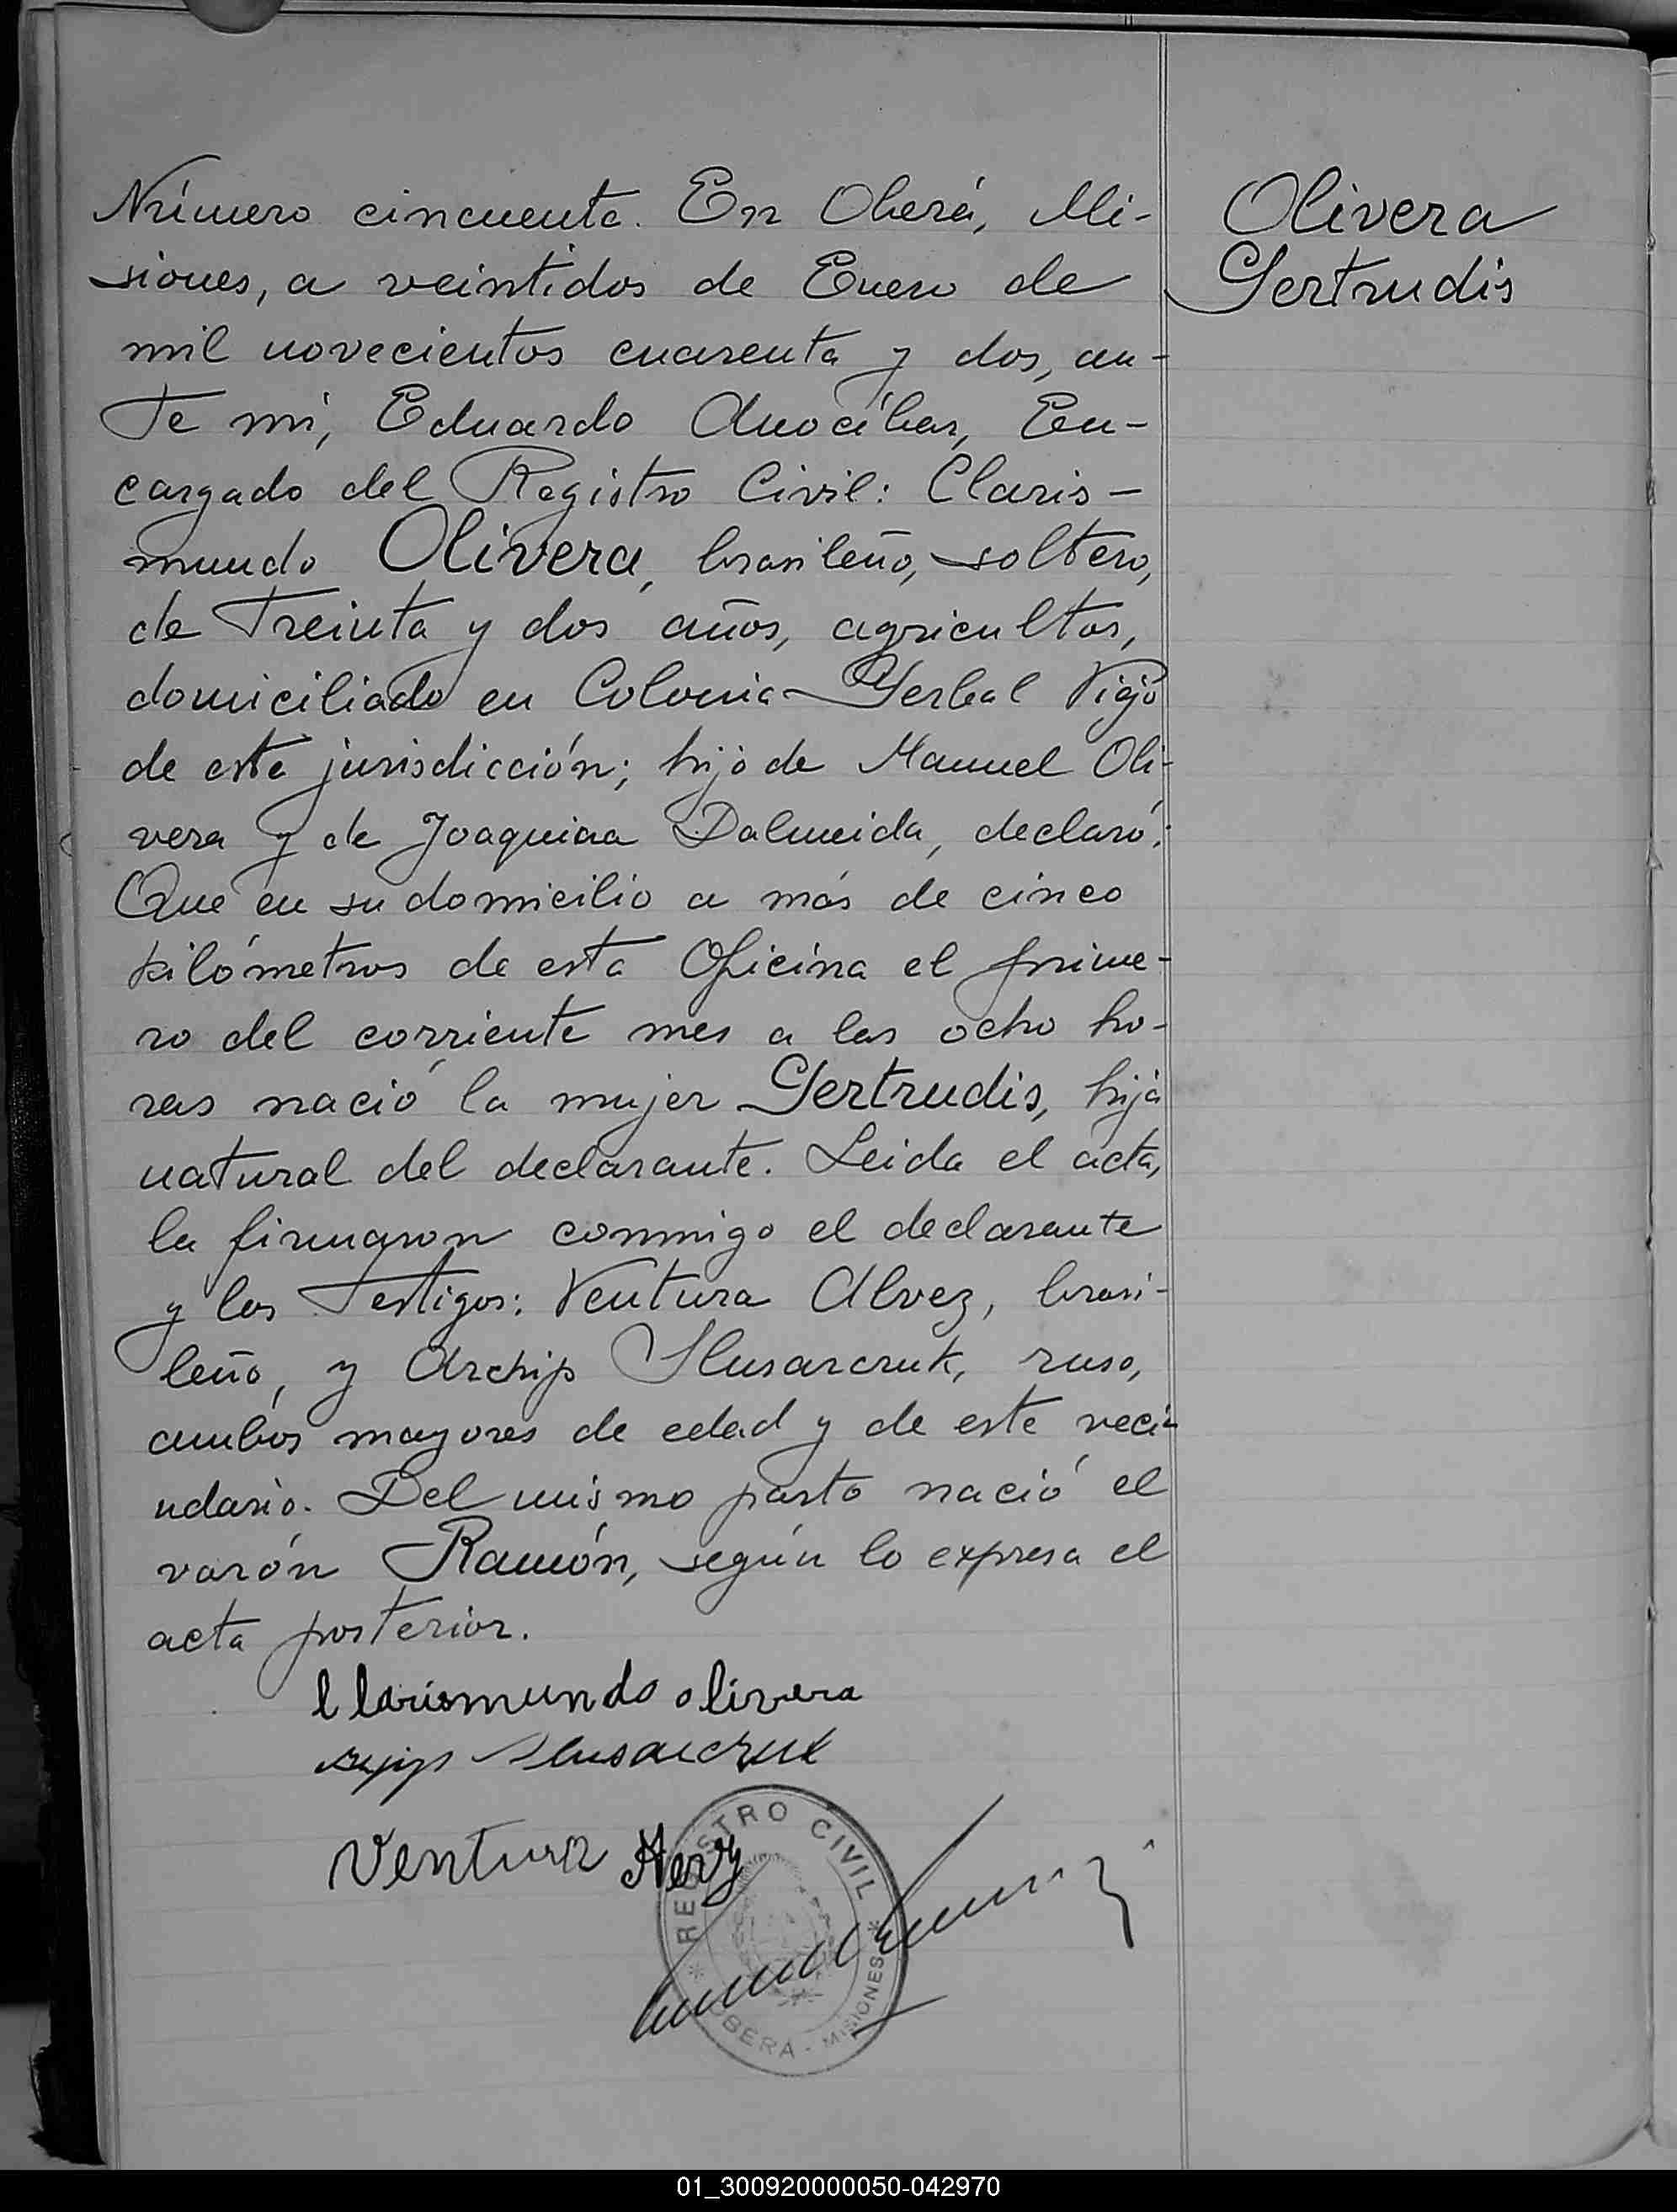 Número cincuenta. En Oberá, Mi-
siones, a veintidos de Enero de
mil novecientos cuarenta y dos, an-
te mí, Eduardo Anocíbar, En-
cargado del Registro Civil: Claris-
mundo Olivera, brasileño, soltero,
de treinta y dos años, agricultor,
domiciliado en Colonia Yerbal Viejo
de esta jurisdicción; hijo de Manuel Oli-
vera y de Joaquina Dalmeida, declaró:
Que en su domicilio a más de cinco
kilómetros de esta Oficina el prime-
ro del corriente mes a las ocho ho-
ras nació la mujer Gertrudis, hija
natural del declarante. Leida el acta,
la firmaron conmigo el declarante
y los testigos: Ventura Alvez, brasi-
leño, y Archip Slusarcruk, ruso,
ambos mayores de edad y de este veci-
ndario. Del mismo parto nació el
varón Ramón, según lo expresa el
acta posterior.
Olivera
Gertrudis
Clarismundo olivera
Slusarcruk
Ventura
REGISTRO CIVIL
OBERA - MISIONES
01_300920000050-042970